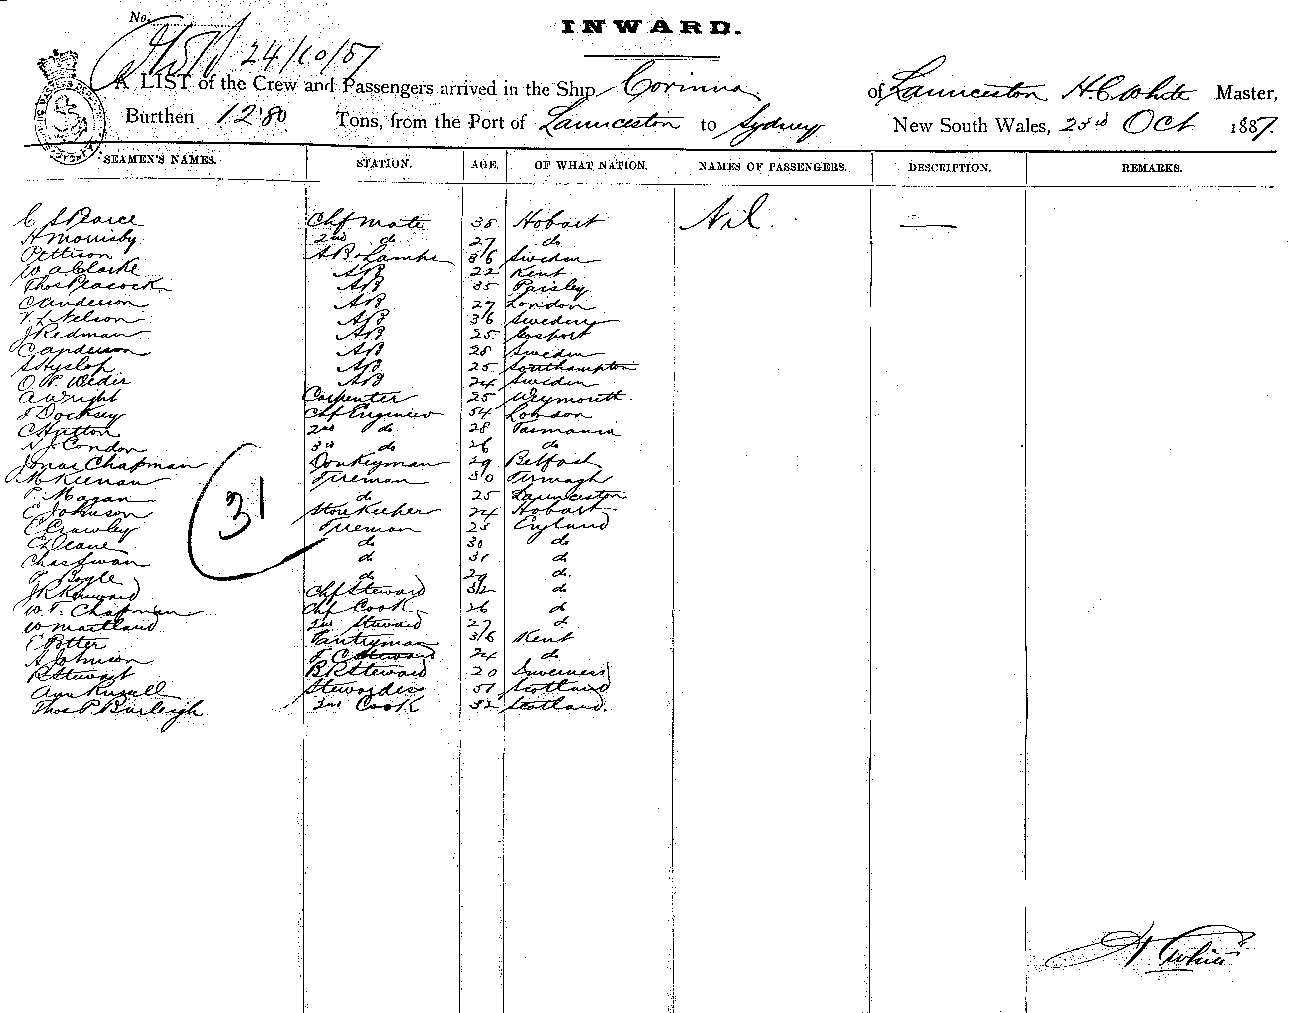 No.
INWARD.
24/10/87
A LIST of the Crew and Passengers arrived in the Ship Corinna of Launceston H.C White Master,
Burthen 1280 Tons, from the Port of Launceston to Sydney New South Wales, 23rd Oct 1887.
SEAMEN'S NAMES. STATION. AGE. OF WHAT NATION. NAMES OF PASSENGERS. DESCRIPTION. REMARKS.
C S Pearce Chf mate 38 Hobart Nil. —
H Morrisby 2nd do 27 do
Pettison AB & Lamps 36 Sweden
W A Clarke AB 22 Kent
Thos Peacock AB 35 Paisley
C Anderson AB 27 London
Nelson AB 36 Sweden
J Redman AB 25 Gosport
C Anderson AB 28 Sweden
S Hyslop AB 25 Southampton
AB 24 Sweden
A Wright Carpenter 25 Weymouth
Docksey Chf Engineer 54 London
C Hutton 2nd do 28 Tasmania
Condon 3rd do 26 do
Jonas Chapman Donkeyman 29 Belfast
M Keenan Fireman 30 Armagh
Magan do 25 Launceston
C Johnson Storekeeper 24 Hobart
C Crawley Fireman 25 England
Deane do 30 do
Chas Swan do 31 do
Bogle do 29 do
Chf Steward 32 do
W T. Chapman Chf Cook 26 do
W Maitland 2nd Steward 27 do
C Potter Pantryman 36 Kent
A Johnson F C Steward 24 do
R Stewart B R Steward 20 Inverness
Ann Russell Stewardess 51 Scotland
Thos P Burleigh 2nd Cook 32 Scotland.
31
H C White